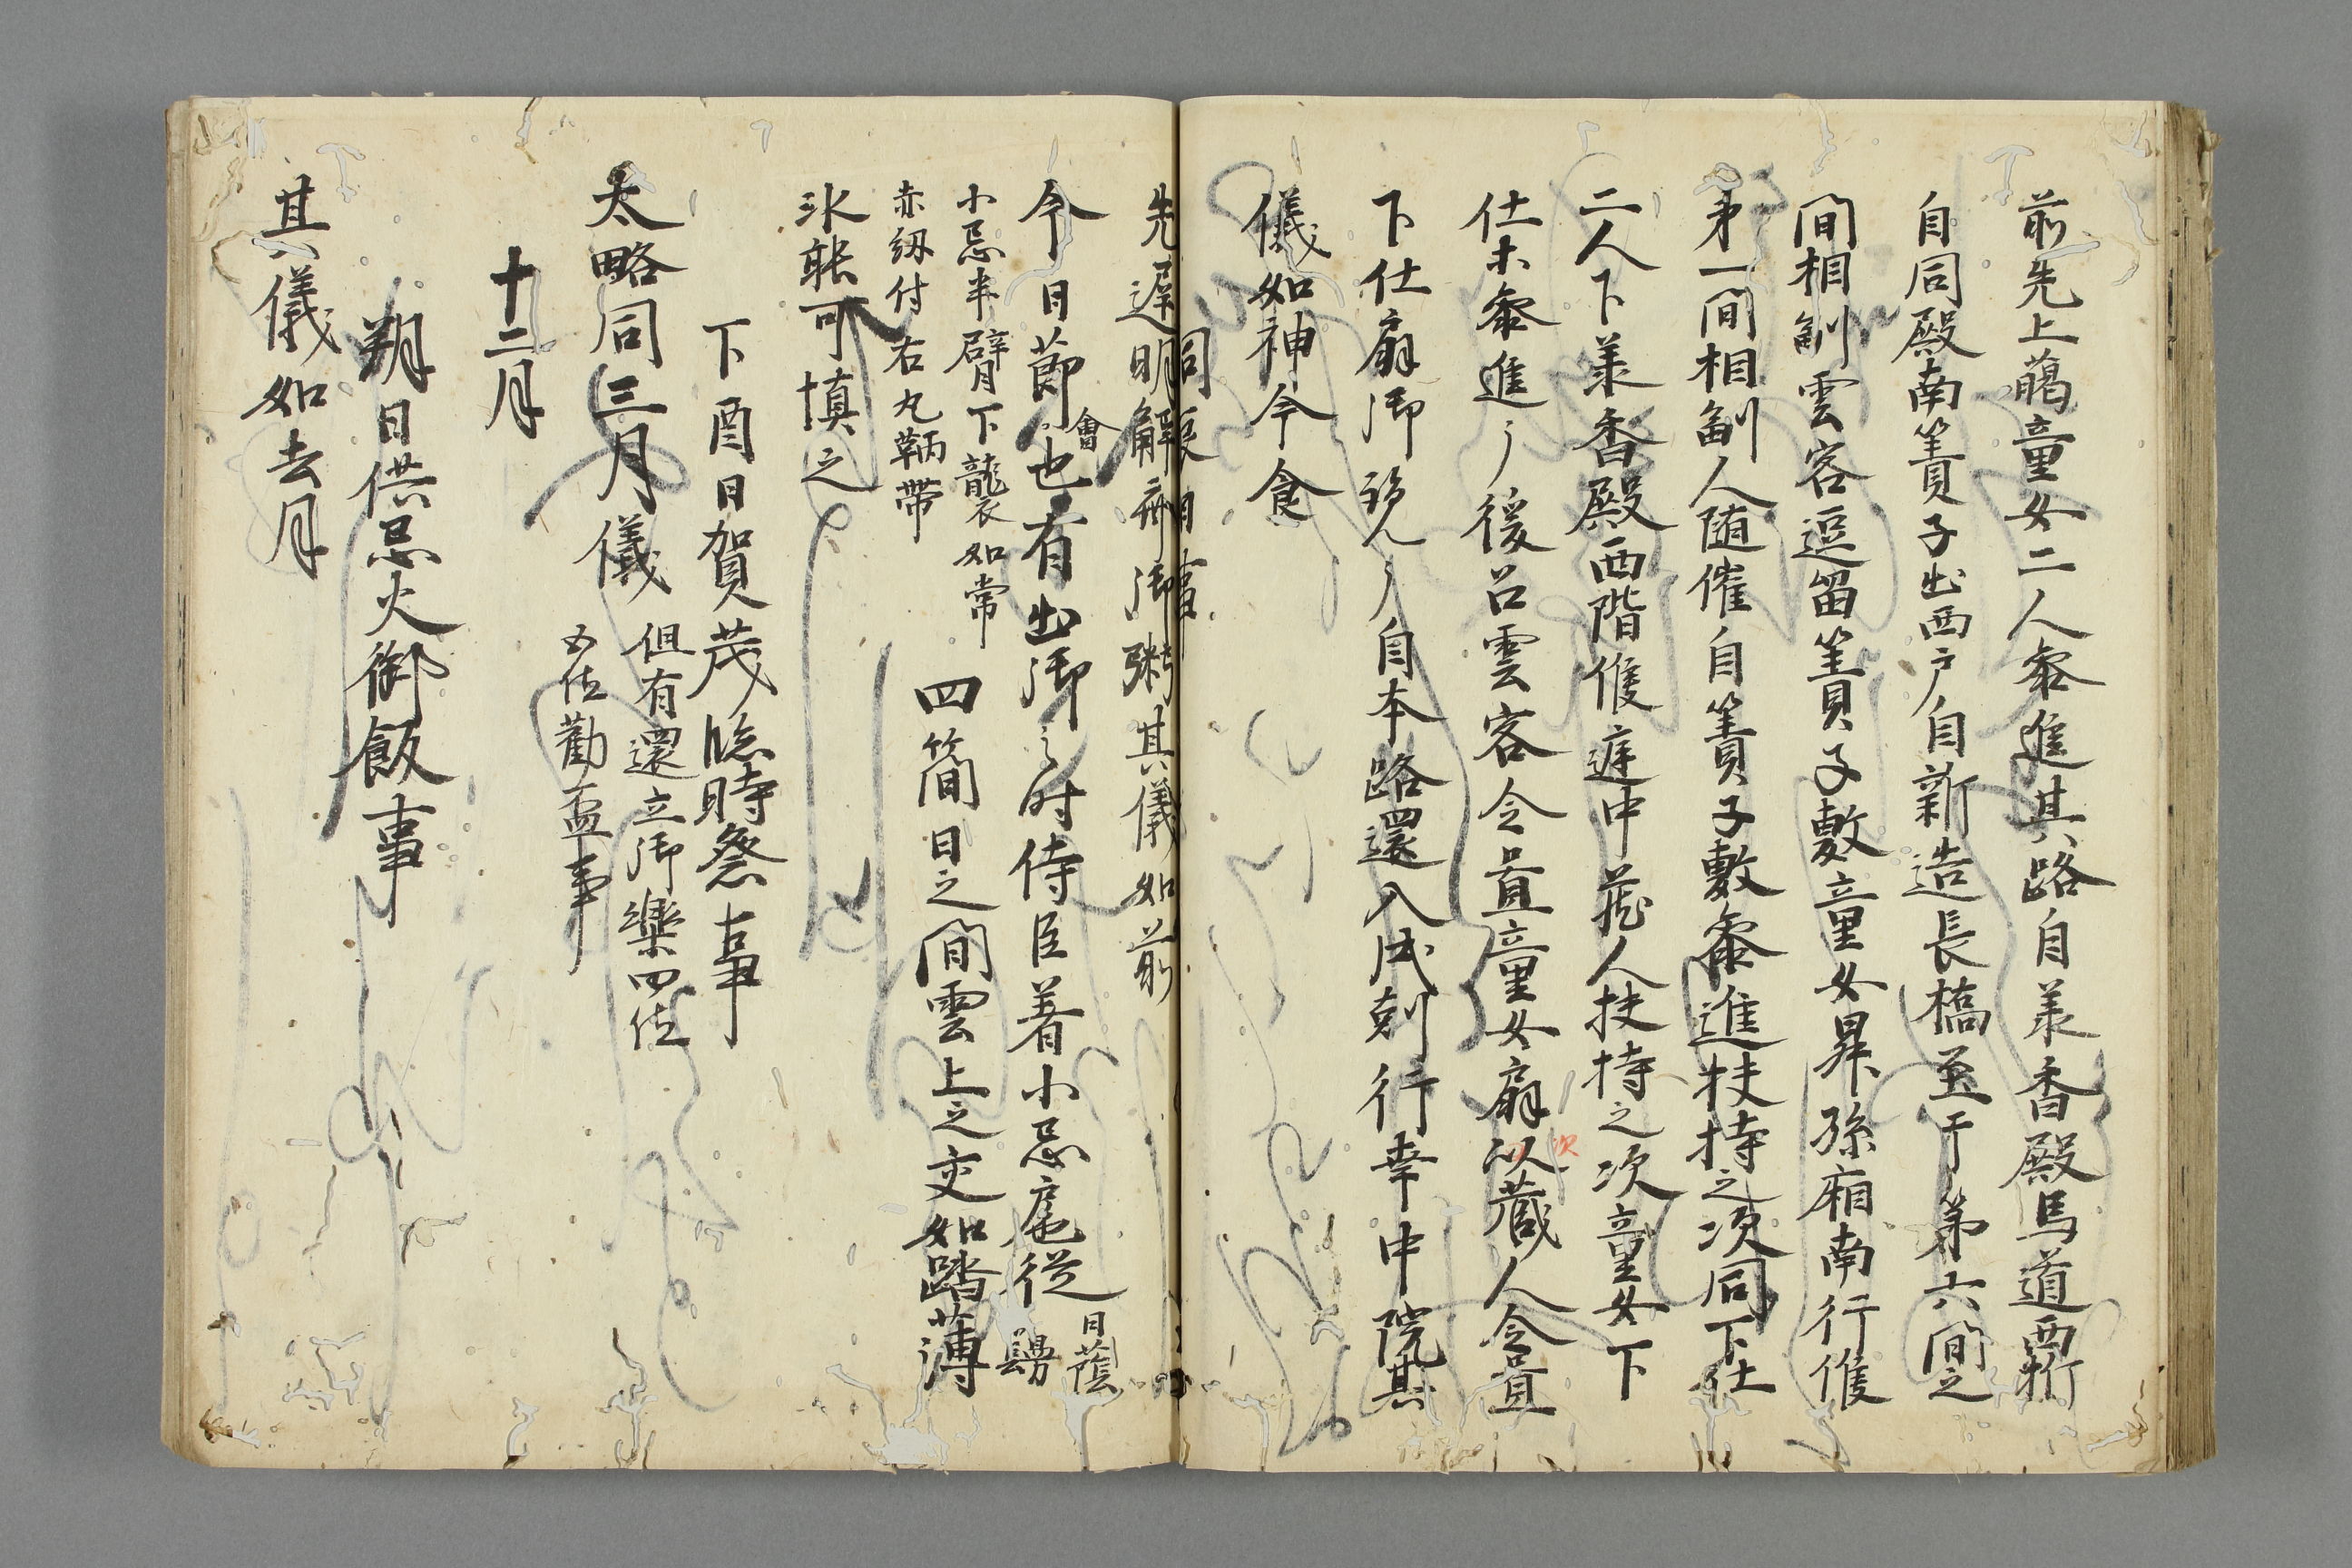 前先上﨟童女二人参進其路自承香殿馬道西行
自同殿南簀子出西戸自新造長橋至于第六間之
間相副雲客逗留簀子敷童女昇孫廂南行候
第一間相副人随催自簀子敷参進扶持之次同下仕
二人下承香殿西階候庭中蔵人扶持之次童女下
仕未参進之後召雲客令置童女扇次以蔵人令置
下仕扇御覧之自本路還入戌剋行幸中院其
儀如神今食
同辰日事
先遅明解斎御粥其儀如前
今日節会也有出御之时侍臣着小忌扈従日蔭鬘
小忌半臂下襲如常
赤紐付右丸鞆帯
四箇日之間雲上之交如踏薄
氷眠可慎之
下酉日賀茂臨時祭事
太略同三月儀但有還立御楽四位
五位勧盃事
十二月
朔日供忌火御飯事
其儀如去月